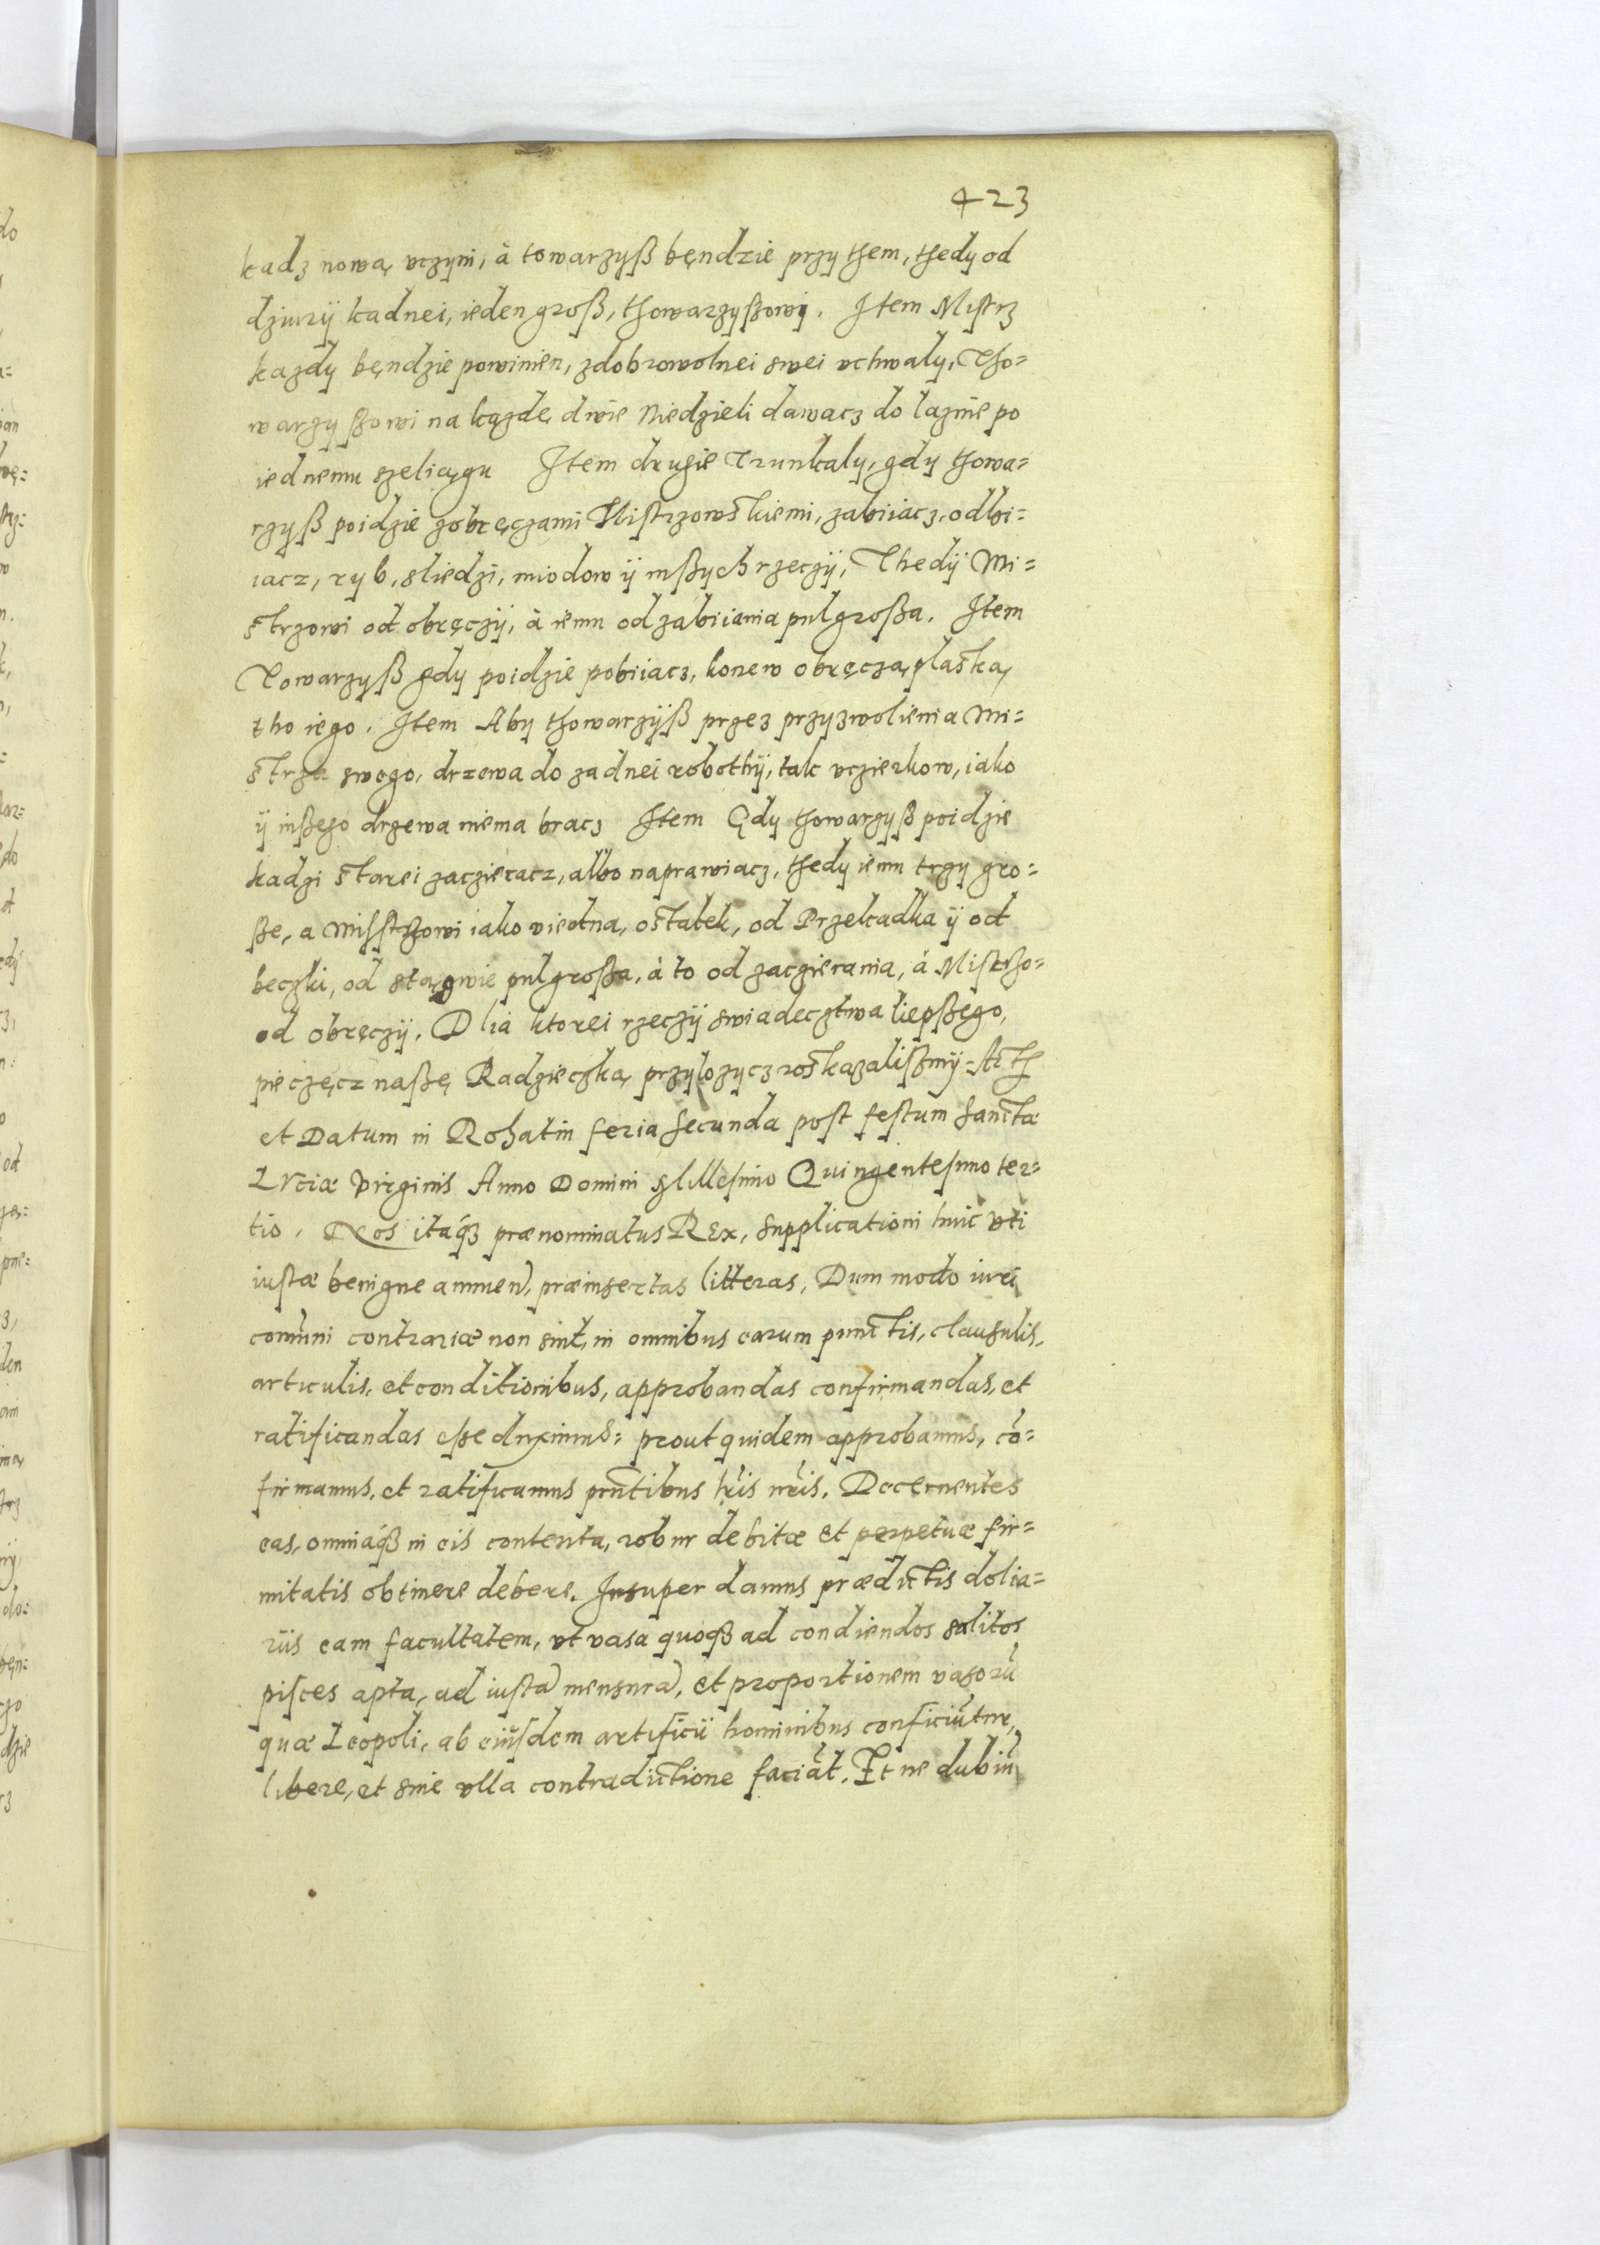 423
kadz nową vczyni, à towarzyß będzie przy them, thedy od
dziury kadnei, ieden groß, thowarzyszowi. Item Mistrz
kazdy bęndzie powinien, zdobrowolnei swei vchwaly, Tho=
warzyszowi na kązdę dwie Niedzieli dawacz do laznie po
iednemu szeliągu Item drugie Trunkaly, gdy thowa=
rzyß poidzie zobręczami Mistrzowskiemi, zabiiacz, odbi=
iacz, ryb, sliedzi, miodow ÿ inßych rzeczÿ, Thedÿ Mi=
strzowi od obręczÿ, à iemu od zabiiania pulgroßa. Item
Towarzyß gdy poidzie pobiiacz, konew obręczą plaską,
tho iego. Item Aby thowarzÿß przez przyzwolienia Mi=
strza swego, drzewa do zadnei robothÿ, tak vczierkow, iako
ÿ inßego drzewa niema bracz Item Gdy thowarzyß poidzie
kadzi starei zaczieracz, albo naprawiacz, thedy iemu trzy gro=
ße, a Misstrzowi iako viedna, ostatek, od Przekadka ÿ od
beczki, od stągwie pulgroßa, à to od zaczierania, à Mistrzo=
od obręczÿ. Dlia ktorei rzeczÿ swiadecztwa liepßego,
pieczęcz naßę Radzieczką przylozycz roskazalißmÿ= Acth
et Datum in Rohatin feria secunda post festum Sanctæ
Luciæ Virginis Anno Domini Millesimo Quingentesimo ter=
tio. Nos itaq́ꝫ prænominatus REx, supplicationi huic vti
iustæ benigne annuen̄, præinsertas litteras, Dum modo iuri
com̄uni contrariæ non sint, in omnibus earum punctis, clausulis,
articulis, et conditionibus, approbandas confirmandas, et
ratificandas eße duximus: prout quidem approbamus, cō=
firmamus, et ratificamus prn̄tibus lr̄is nr̄is. Decernentes
eas, omniaq́ꝫ in eis contenta, robur debitæ et perpetuæ fir=
mitatis obtinere debere. Insuper damus prædictis dolia=
riis eam facultatem, vt vasa quoqꝫ ad condiendos salitos
pisces apta, ad iustā mensurā, et proportionem vasorū
quæ Leopoli, ab eiusdem artificii hominibus conficiūtur,
libere, et sine vlla contradictione faciāt. Et ne dubiū